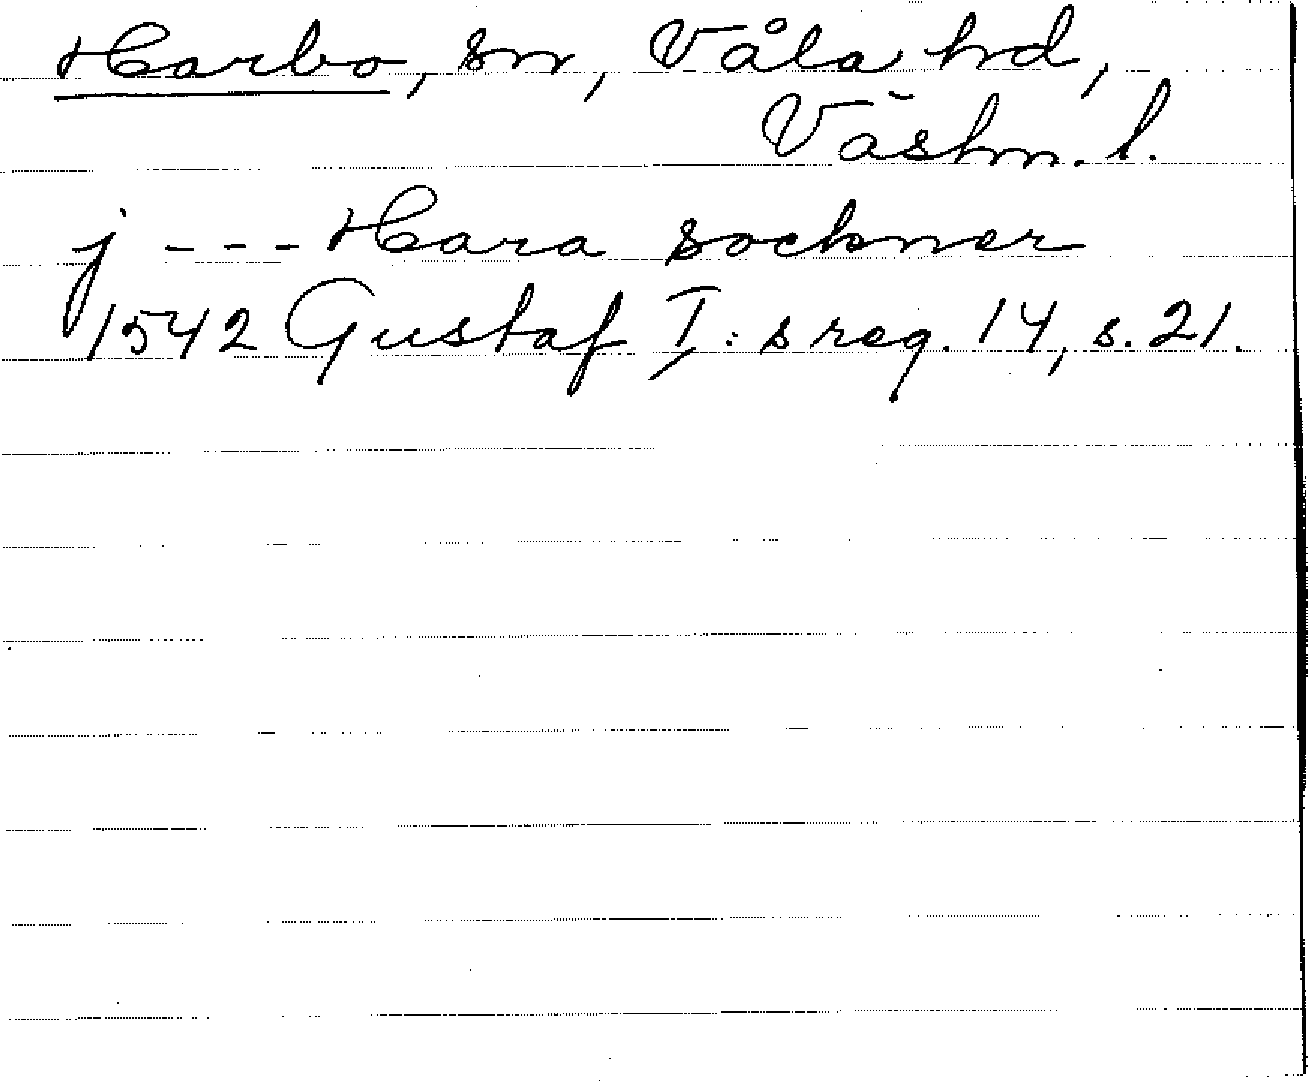 Harbo, sn, Våla hd,
Västm. l.
j --- Hara sockner
1542 Gustaf I: s reg. 14, s. 21.